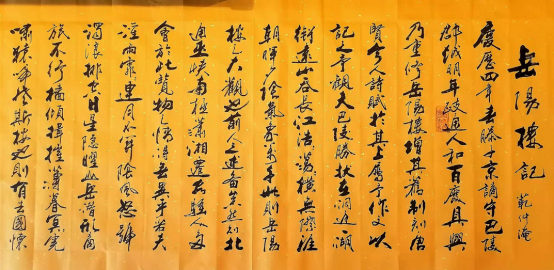 岳陽樓記 范仲淹
慶歷四年春滕子京謫守巴陵
郡越明年政通人和百廢具興
乃重修岳陽樓增其舊制刻唐
賢今人詩賦於其上屬予作文以
記之予觀夫巴陵勝狀在洞庭湖
銜遠山吞長江浩浩湯湯橫無際涯
朝暉夕陰氣象萬千此則岳陽
樓之大觀也前人之述備矣然則北
通巫峽南極瀟湘遷客騷人多
會於此覽物之情得無異乎若夫
淫雨霏霏連月不開陰風怒號
濁浪排空日星隱曜山岳潛形商
旅不行檣傾楫摧薄暮冥冥虎
嘯猿啼登斯樓也則有去國懷